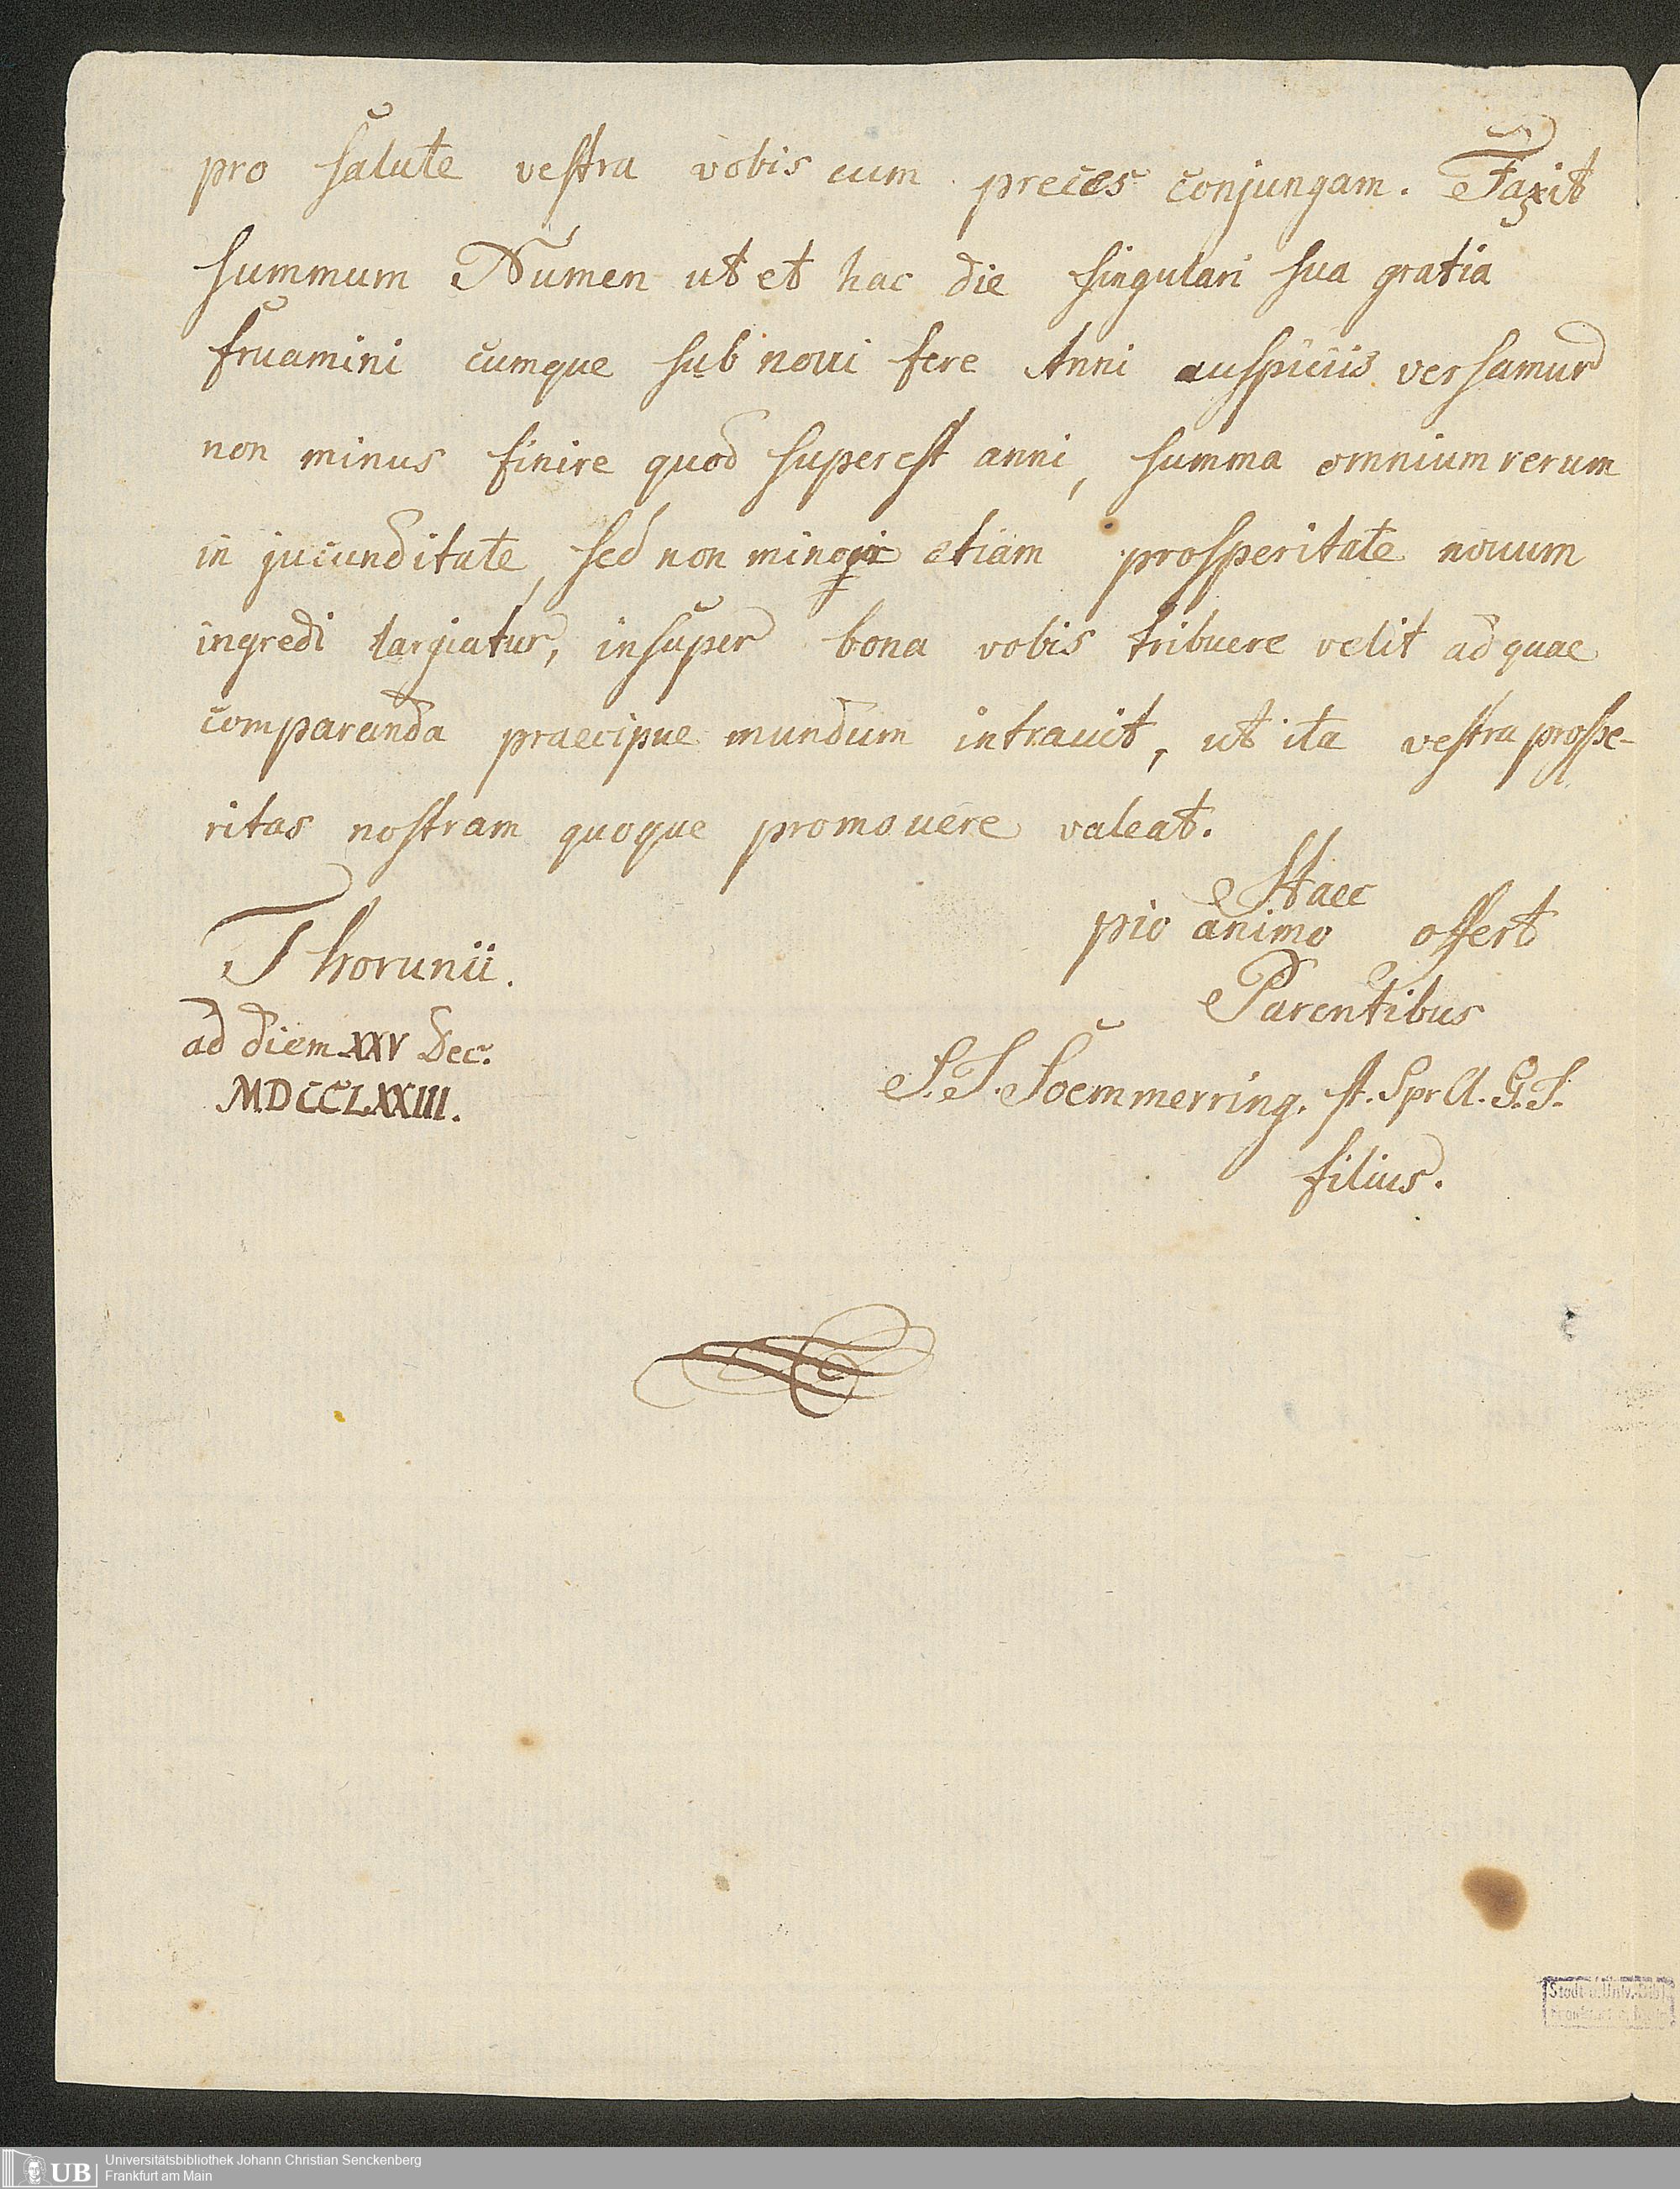 pro salute vestra vobis cum preces conjungam. Faxit
summum Numen ut et hac die singulari sua gratia
fruamini cumque sub noui fere Anni auspiciis versamur
non minus finire quod superest anni, summa omnium rerum
in jucunditate, sed non minori etiam prosperitate nouum
ingredi largiatur, insuper bona vobis tribuere velit ad quae
comparanda praecipue mundum intrauit, ut ita vestra prospe-
ritas nostram quoque promouere valeat.
Haec
pio animo offert
Parentibus
S. T. Soemmerring. st. Spr Cl. G. T.
filius.
Thorunii.
ad diem XXV Dec.
MDCCLXXIII.
Stadt u. Univ.-Bibl.
Frankfurt
UB
Universitätsbibliothek Johann Christian Senckenberg
Frankfurt am Main